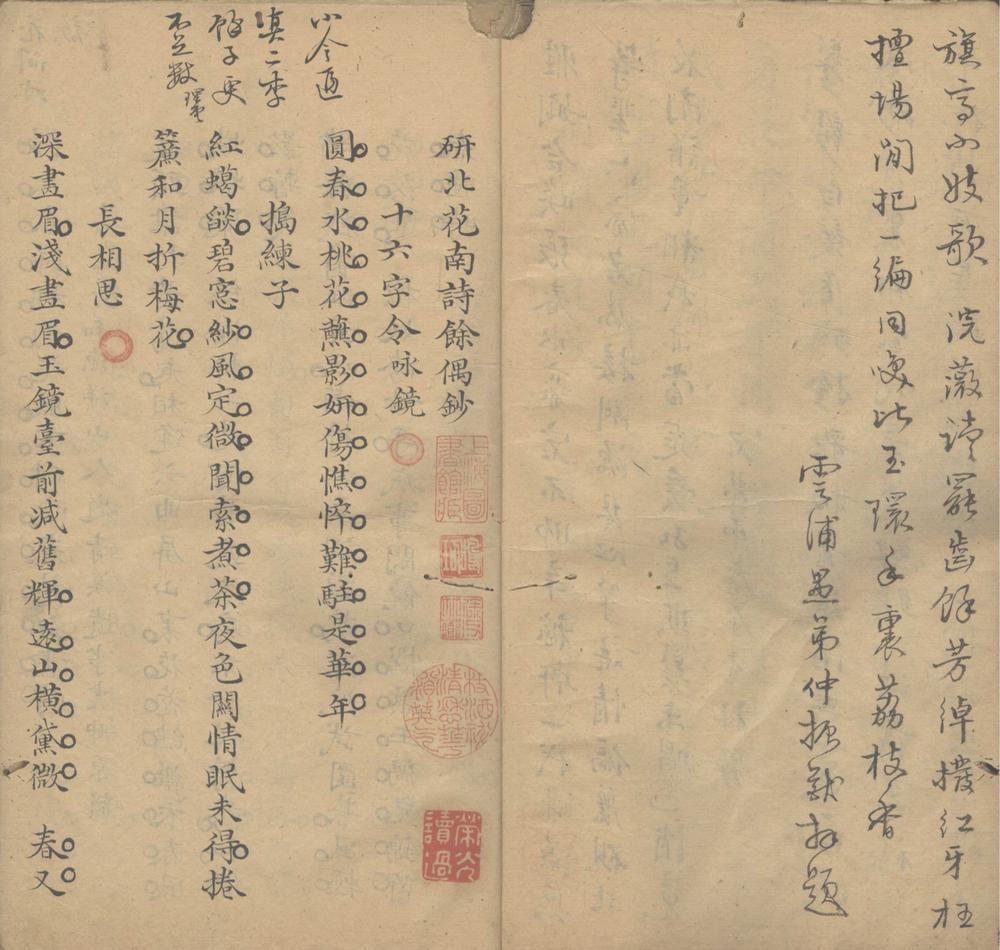 旗亭小妓歌 浣薇讀罷齒餘芳綽撥紅牙枉
擅場閒把一編同喚比玉環手裏荔枝香
雲浦愚弟仲振猷拜題
研北花南詩餘偶鈔
十六字令咏鏡
圓春水桃花蘸影妍傷憔悴難駐是華年
搗練子
紅蠟燄碧窓紗風定微聞索煮茶夜色闌情眠未得捲
簾和月折梅花
長相思
深畫眉淺畫眉玉鏡臺前減舊輝遠山橫黛微 春又
小令逼
真二李
餘子更
不足數
上海圖書館藏
讀過